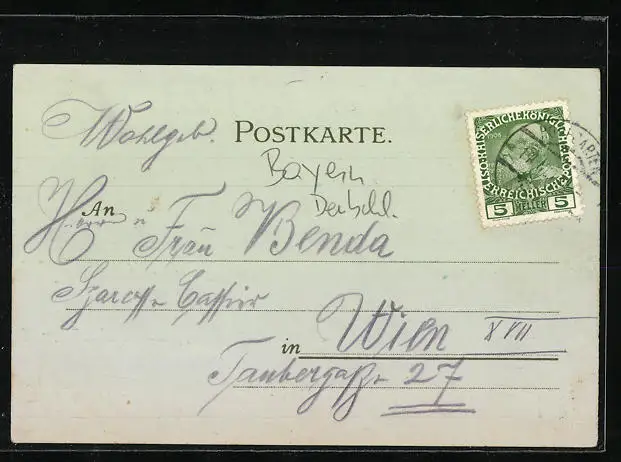 Wohlgeb. POSTKARTE.
Bayern
Deutschl.
An
Herrn u Frau Benda
Sparcass. Cassier
in Wien XVII
Taubergasse 27
KAISERLICHE KÖNIGLICHE
ÖSTERREICHISCHE POST
1908
5 HELLER 5